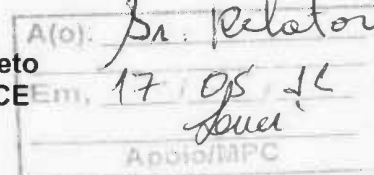 A(o): Sr. Relator
eto
CE Em, 17 / 05 /
Apoio/MPC